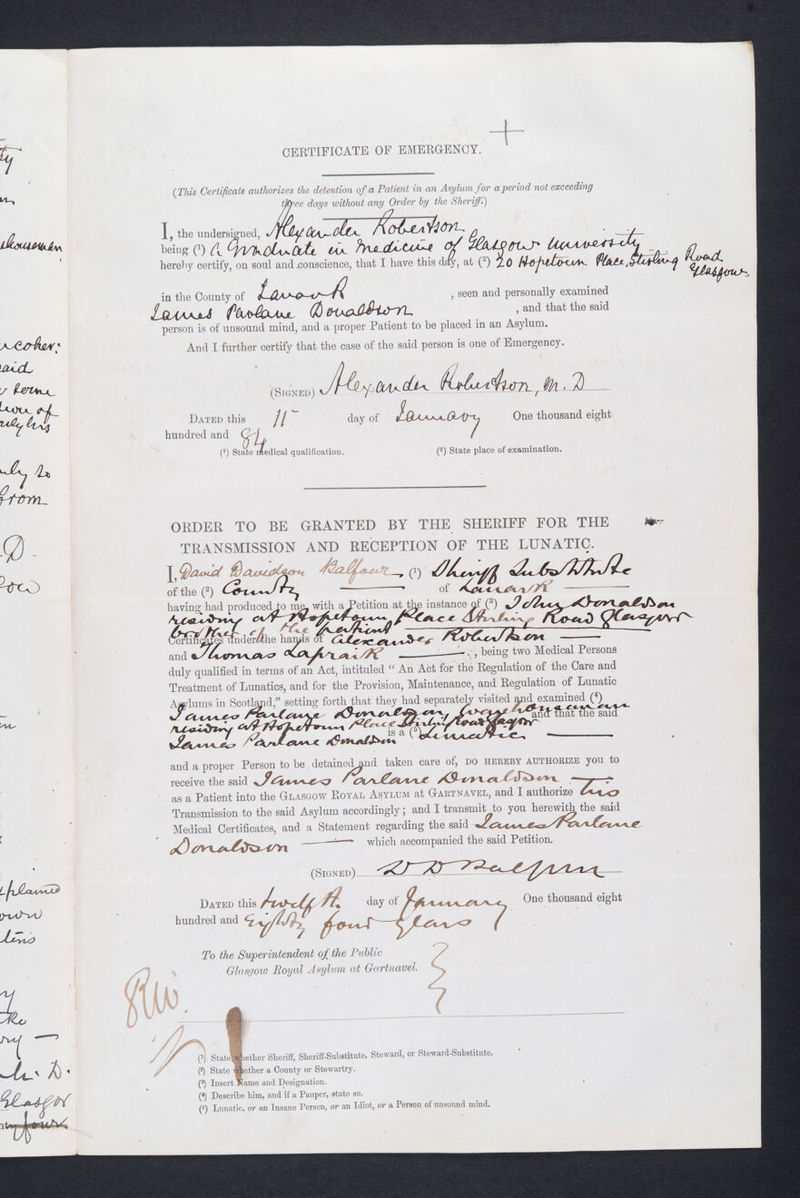 CERTIFICATE OF EMERGENCY.
(This Certificate authorizes the detention of a Patient in an Asylum for a period not exceeding
three days without any Order by the Sheriff.)
I, the undersigned, Alexander Robertson
being (¹) A Graduate in Medicine of Glasgow University
hereby certify, on soul and conscience, that I have this day, at (²) 20 Hopetoun Place, Stirling Road
Glasgow
in the County of Lanark, seen and personally examined
James Parlane Donaldson, and that the said
person is of unsound mind, and a proper Patient to be placed in an Asylum.
And I further certify that the case of the said person is one of Emergency.
(SIGNED) Alexander Robertson, M.D
DATED this 11 day of January One thousand eight
hundred and 84
(¹) State medical qualification. (²) State place of examination.
ORDER TO BE GRANTED BY THE SHERIFF FOR THE
TRANSMISSION AND RECEPTION OF THE LUNATIC.
I, David Davidson Balfour, (¹) Sheriff Substitute
of the (²) County of Lanark
having had produced to me, with a Petition at the instance of (³) John Donaldson
residing at Hopetoun Place Stirling Road Glasgow
brother of the patient
Certificates under the hands of Alexander Robertson
and Thomas Lapraik, being two Medical Persons
duly qualified in terms of an Act, intituled "An Act for the Regulation of the Care and
Treatment of Lunatics, and for the Provision, Maintenance, and Regulation of Lunatic
Asylums in Scotland," setting forth that they had separately visited and examined (⁴)
James Parlane Donaldson, warehouseman
residing at Hopetoun Place Stirling Road Glasgow and that the said
James Parlane Donaldson is a (⁵) Lunatic
and a proper Person to be detained and taken care of, DO HEREBY AUTHORIZE you to
receive the said James Parlane Donaldson
as a Patient into the GLASGOW ROYAL ASYLUM AT GARTNAVEL, and I authorize his
Transmission to the said Asylum accordingly; and I transmit to you herewith the said
Medical Certificates, and a Statement regarding the said James Parlane
Donaldson which accompanied the said Petition.
(SIGNED) D D Balfour
DATED this twelfth day of January One thousand eight
hundred and Eighty four years
To the Superintendent of the Public
Glasgow Royal Asylum at Gartnavel.
(¹) State whether Sheriff, Sheriff-Substitute, Steward, or Steward-Substitute.
(²) State whether a County or Stewartry.
(³) Insert Name and Designation.
(⁴) Describe him, and if a Pauper, state so.
(⁵) Lunatic, or an Insane Person, or an Idiot, or a Person of unsound mind.